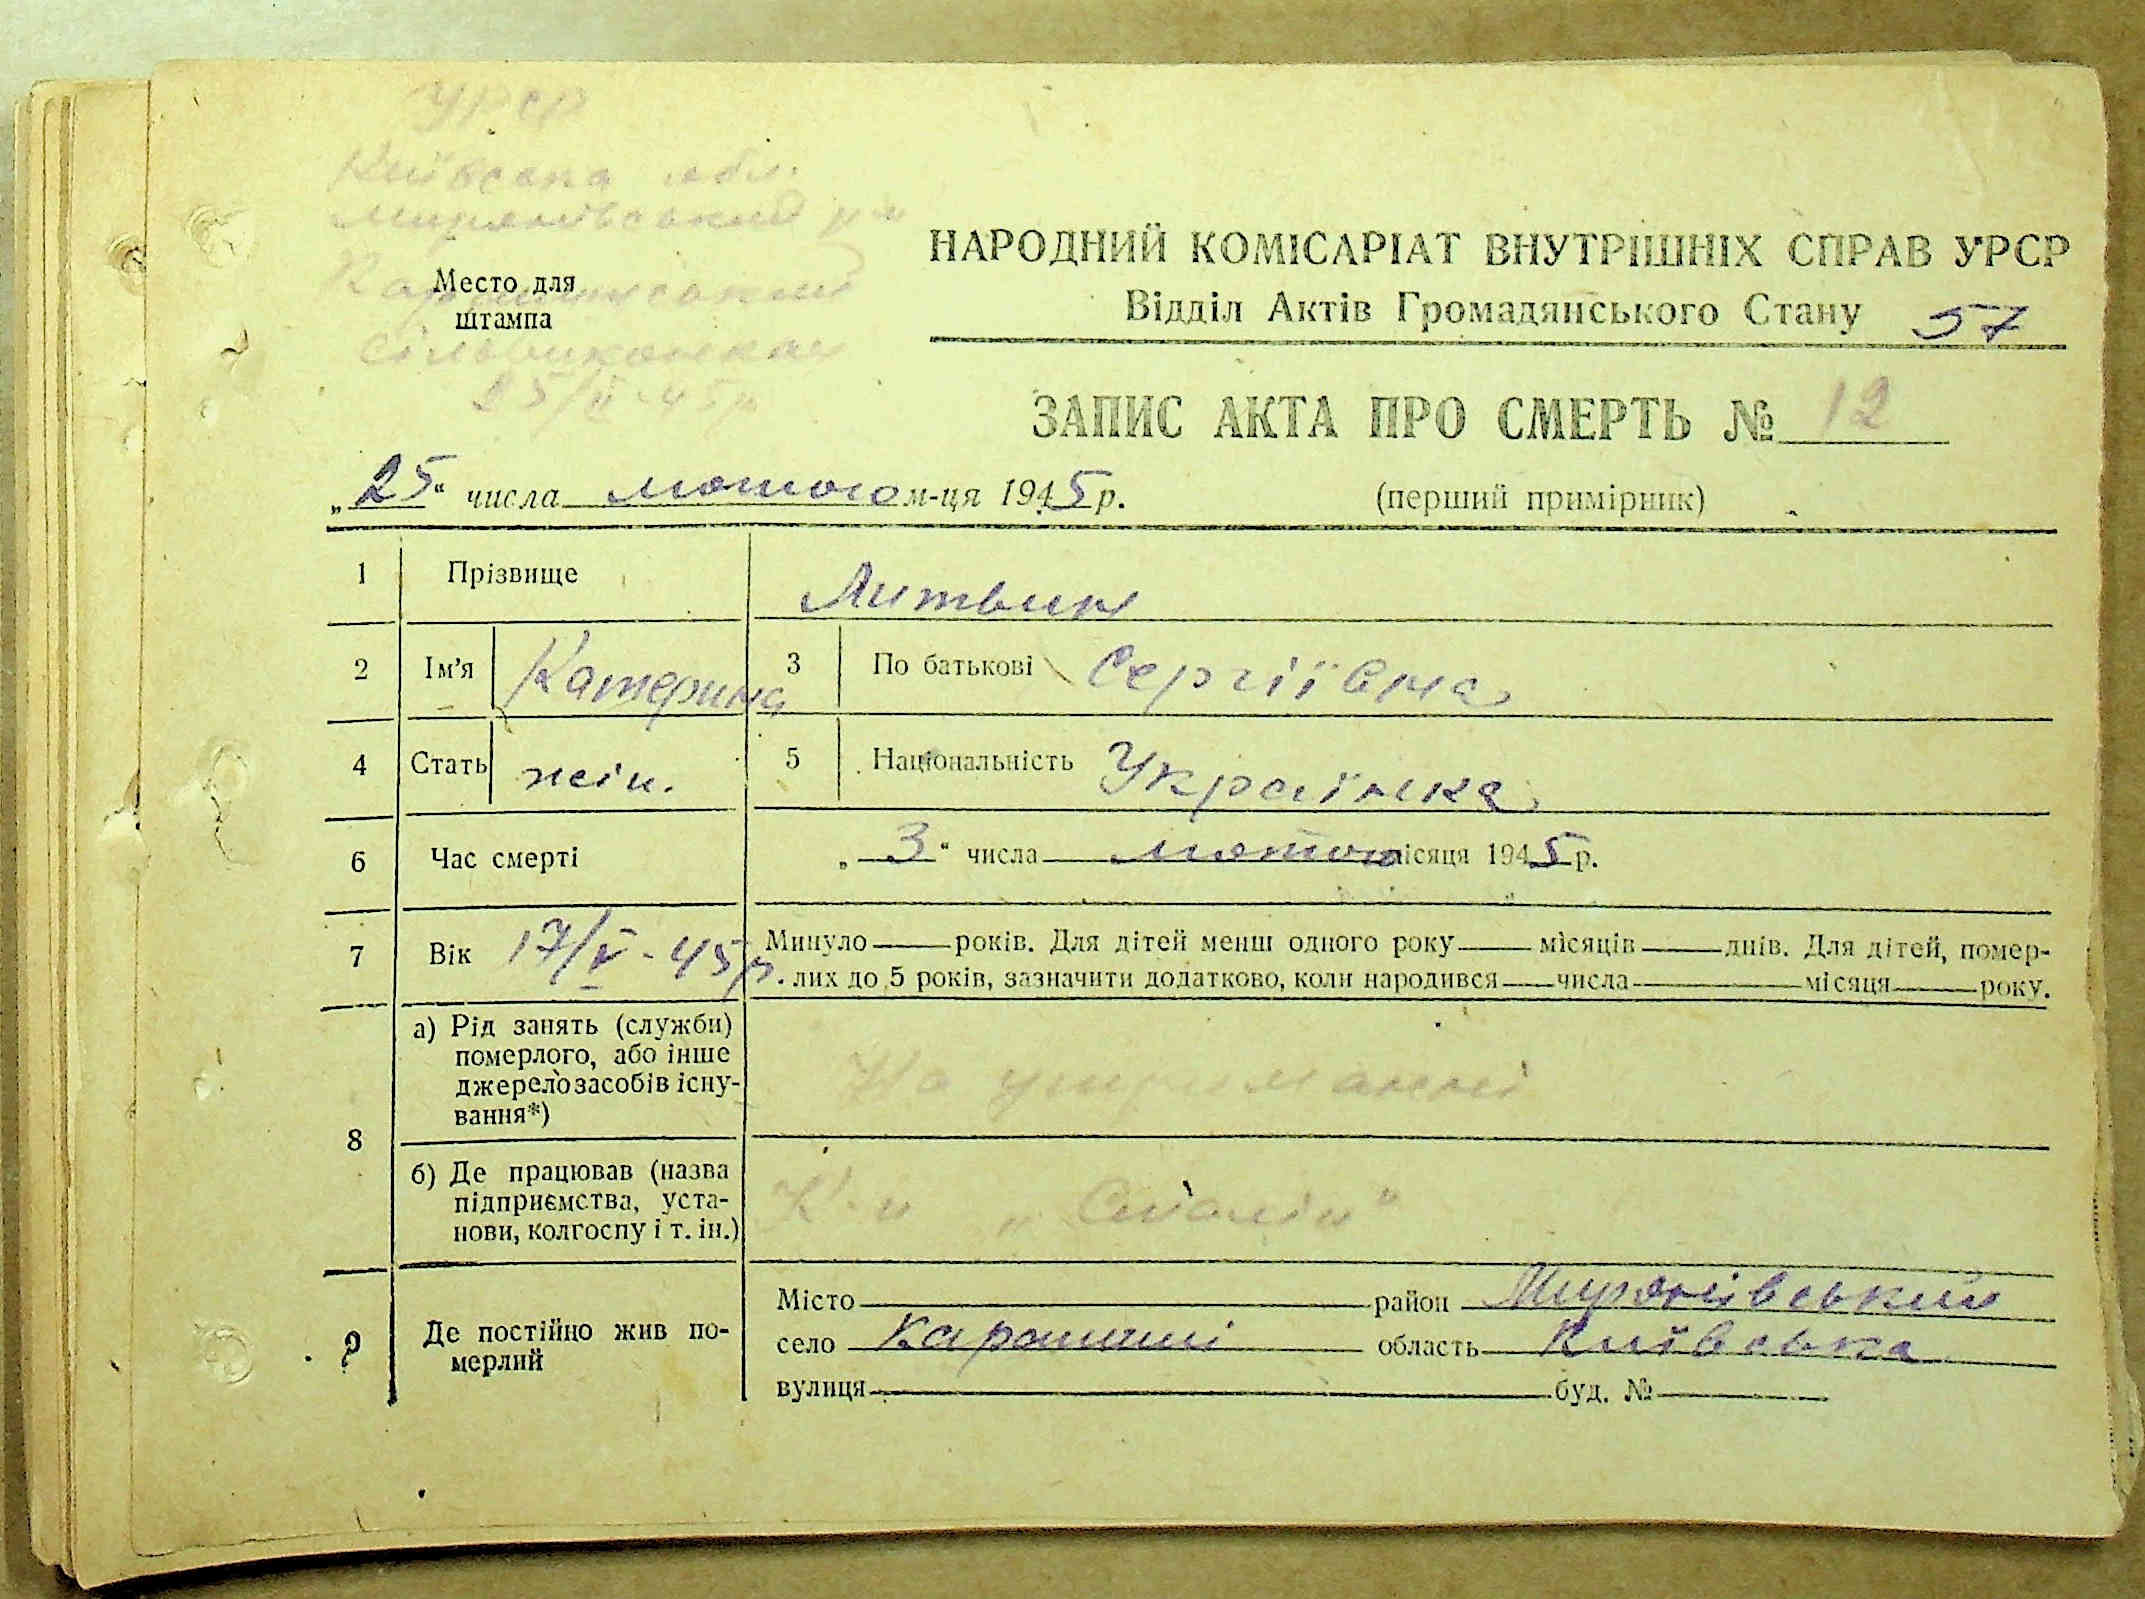 УРСР
Київська обл.
Миронівський р-н
Карапишський
Место для
штампа
сільвиконком
25/II-45р
НАРОДНИЙ КОМІСАРІАТ ВНУТРІШНІХ СПРАВ УРСР
Відділ Актів Громадянського Стану 57
ЗАПИС АКТА ПРО СМЕРТЬ № 12
„25“ числа лютого м-ця 1945 р.
(перший примірник)
1 Прізвище Литвин
2 Ім’я Катерина 3 По батькові Сергіївна
4 Стать жін. 5 Національність Українка
6 Час смерті „3“ числа лютого місяця 1945 р.
7 Вік 17/V-45р. Минуло років. Для дітей менш одного року місяців днів. Для дітей, помер-
лих до 5 років, зазначити додатково, коли народився числа місяця року.
8 а) Рід занять (служби)
померлого, або інше
джерело засобів існу-
вання*)
На утриманні
б) Де працював (назва
підприємства, уста-
нови, колгоспу і т. ін.)
К-п „Сталін“
9 Де постійно жив по-
мерлий
Місто район Миронівський
село Карапиші область Київська
вулиця буд. №